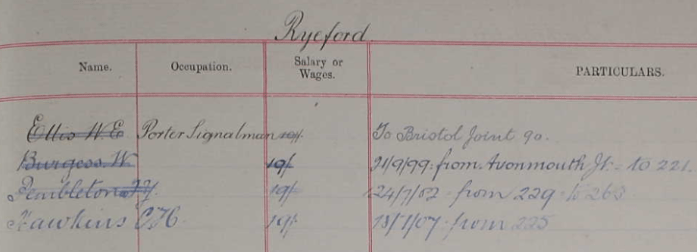 Ryeford
Name. Occupation. Salary or Wages. PARTICULARS.
Ellis W E Porter Signalman 19/- To Bristol Joint 90.
Burgess W. 19/- 21/9/99 from Avonmouth Jt. to 221.
Pembleton 19/- 24/7/ from 229 to 263
Hawkins C H. 19/- 18/1/07 from 225